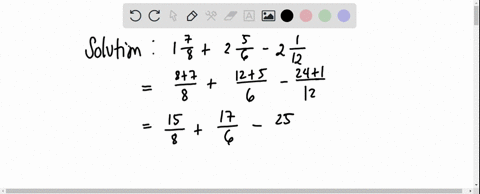 Solution : 1 7/8 + 2 5/6 - 2 1/12
= 8+7/8 + 12+5/6 - 24+1/12
= 15/8 + 17/6 - 25